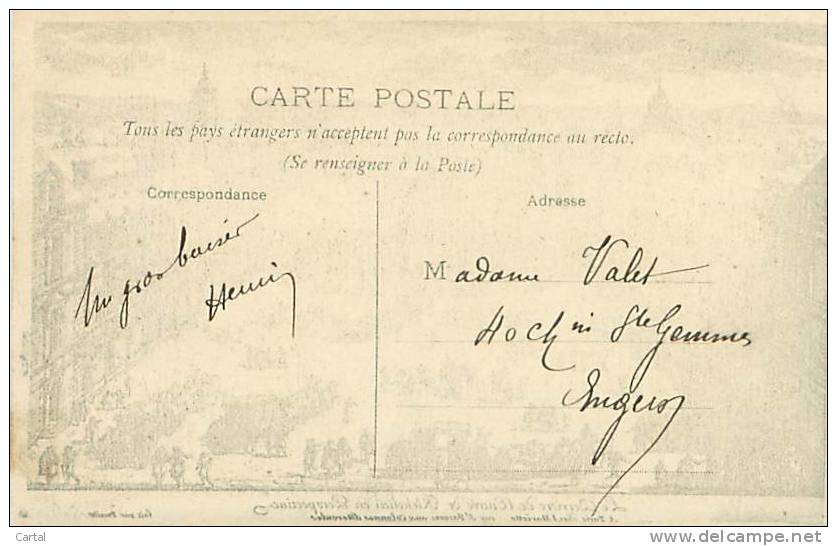 CARTE POSTALE
Tous les pays étrangers n'acceptent pas la correspondance au recto.
(Se renseigner à la Poste)
Correspondance
Adresse
Un gros baiser
Henri
Madame Valet
40 ch Ste Gemmes
Angers
Cartal
www.delcampe.net